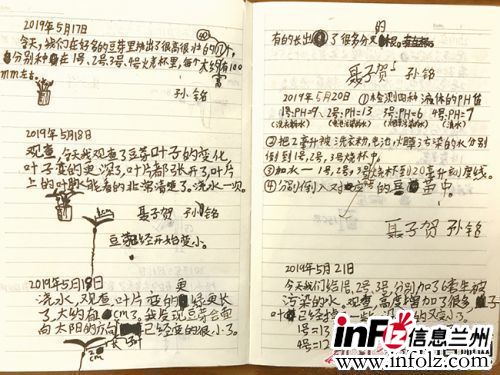 2019年5月17日
今天,我们在好多的豆芽里抽出了很高很壮的
分别种在1号,2号3号,4号烧杯里,每个大约有100
mm左右。
孙铭
2019年5月18日
观查,今天我观查了豆芽叶子的变化,
叶子变的更深了,叶片都张开了,叶片
上的叶脉能看的非常清楚了,浇水一次。
聂子贺 孙铭
豆芽已经开始变小。
2019年5月19日
浇水,观查,叶片变的更长
了,大约有 cm了,我发现豆芽会面
向太阳的方向 已经变的很小了。
的
有的长出了很多分叉
聂子贺 孙铭
2019年5月20日 ①检测四种液体的PH值
1号:PH=9 2号:PH=13 3号:PH=6 4号:PH=7
(清水)
②把2毫升被洗衣粉,电池,火碱污染的水分别
倒到1号,2号,3号烧杯中
③加水一1号,2号,3号烧杯到20毫升刻度线。
④分别倒入对应的豆苗中。
聂子贺 孙铭
2019年5月21日
今天我们给1号,2号,3号,分别加了6毫升被
污染的水。观查,高度增加了很多,子
叶已经
1号=13
4号=12
infolz 信息兰州
www.infolz.com